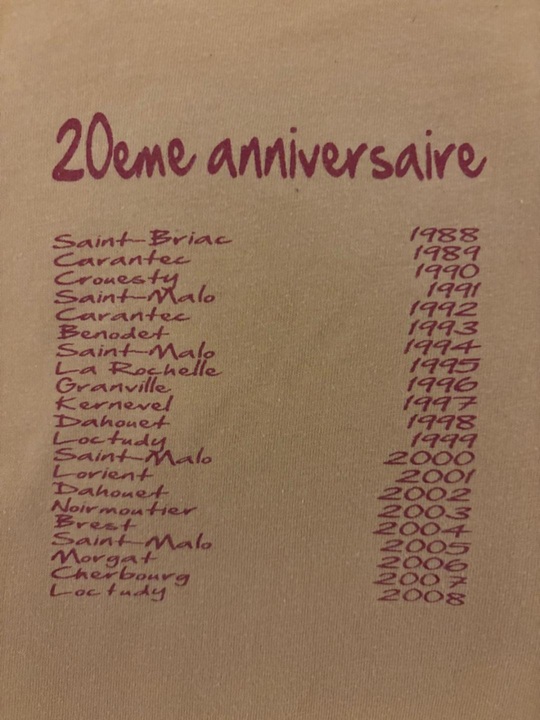 20eme anniversaire
Saint-Briac 1988
Carantec 1989
Crouesty 1990
Saint-Malo 1991
Carantec 1992
Benodet 1993
Saint-Malo 1994
La Rochelle 1995
Granville 1996
Kernevel 1997
Dahouet 1998
Loctudy 1999
Saint-Malo 2000
Lorient 2001
Dahouet 2002
Noirmoutier 2003
Brest 2004
Saint-Malo 2005
Morgat 2006
Cherbourg 2007
Loctudy 2008